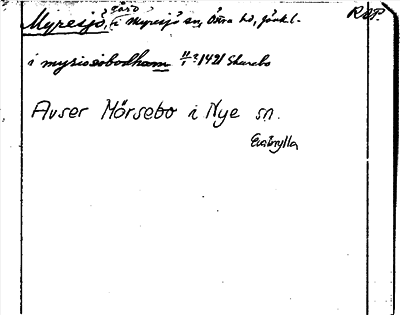 Myresjö, gård i Myresjö sn, Östra hd, Jönk l.
RAP.
i mysiosiobodham 11/1 1421 Skarebo
Avser Mörsebo i Nye sn.
Eva Brylla